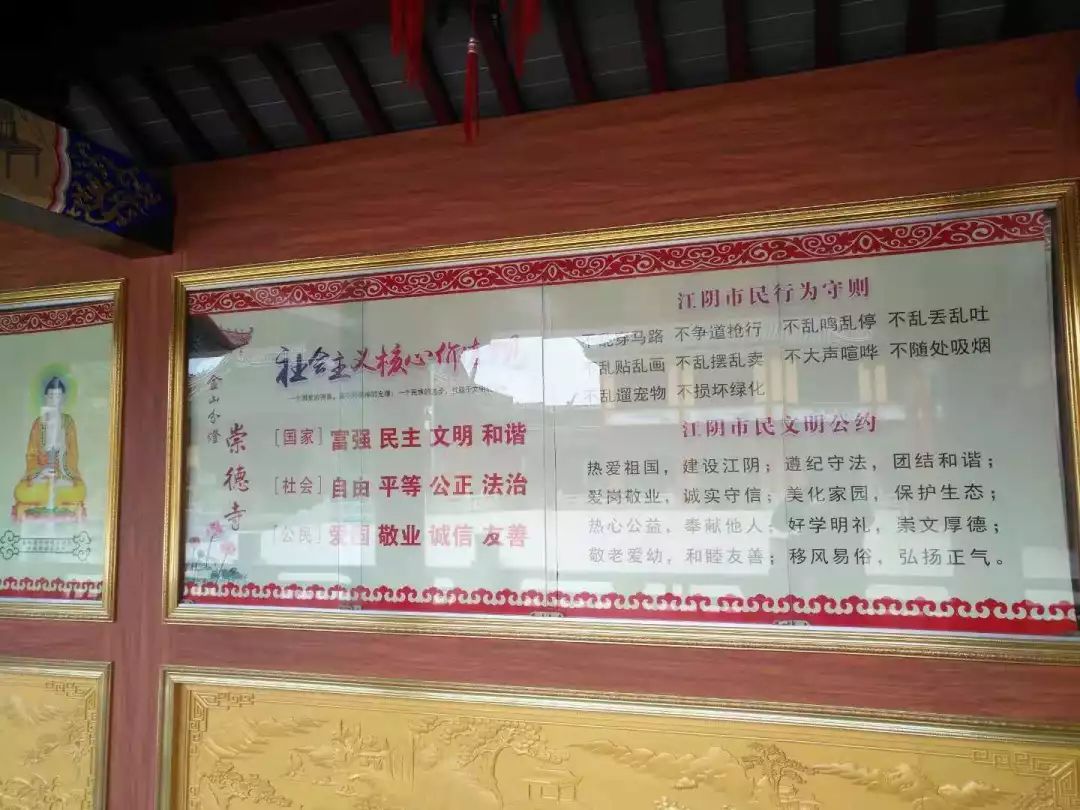 金山分燈
崇德寺
社会主义核心价值观
[国家] 富强 民主 文明 和谐
[社会] 自由 平等 公正 法治
[公民] 爱国 敬业 诚信 友善
江阴市民行为守则
不乱穿马路 不争道抢行 不乱鸣乱停 不乱丢乱吐
不乱贴乱画 不乱摆乱卖 不大声喧哗 不随处吸烟
不乱遛宠物 不损坏绿化
江阴市民文明公约
热爱祖国，建设江阴；遵纪守法，团结和谐；
爱岗敬业，诚实守信；美化家园，保护生态；
热心公益，奉献他人；好学明礼，崇文厚德；
敬老爱幼，和睦友善；移风易俗，弘扬正气。